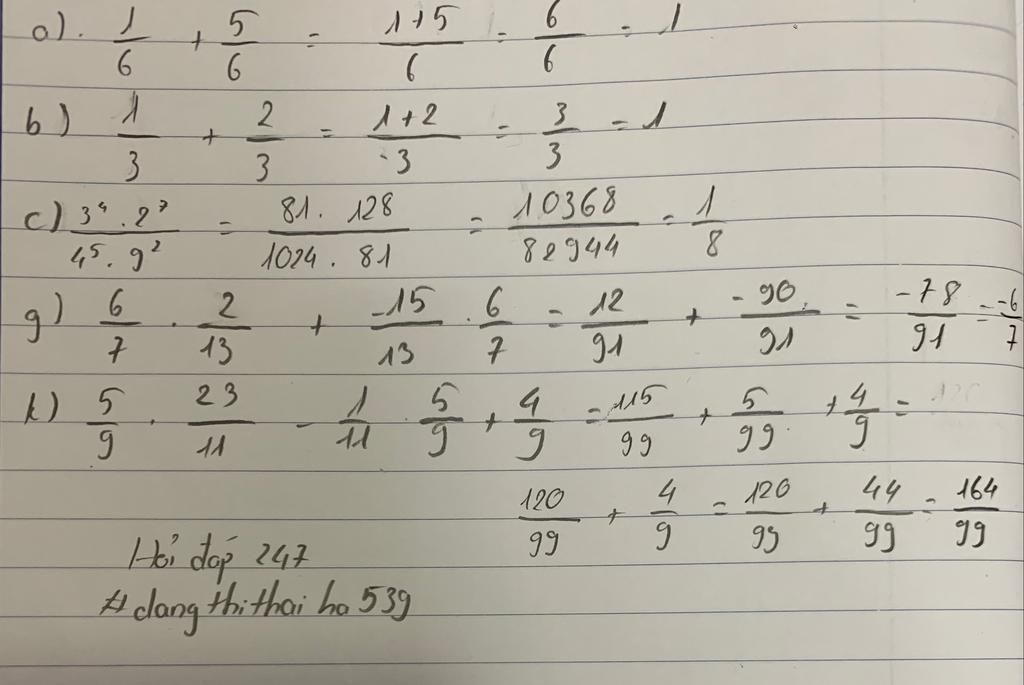 a). 1/6 + 5/6 = 1+5/6 = 6/6 = 1
b) 1/3 + 2/3 = 1+2/3 = 3/3 = 1
c) 3⁴ . 2⁷/4⁵ . 9² = 81 . 128/1024 . 81 = 10368/82944 = 1/8
g) 6/7 . 2/13 + -15/13 . 6/7 = 12/91 + -90/91 = -78/91 = -6/7
k) 5/9 . 23/11 - 1/11 . 5/9 + 4/9 = 115/99 + 5/99 + 4/9 =
120/99 + 4/9 = 120/99 + 44/99 = 164/99
Hỏi đáp 247
# dang thi thai ha 539